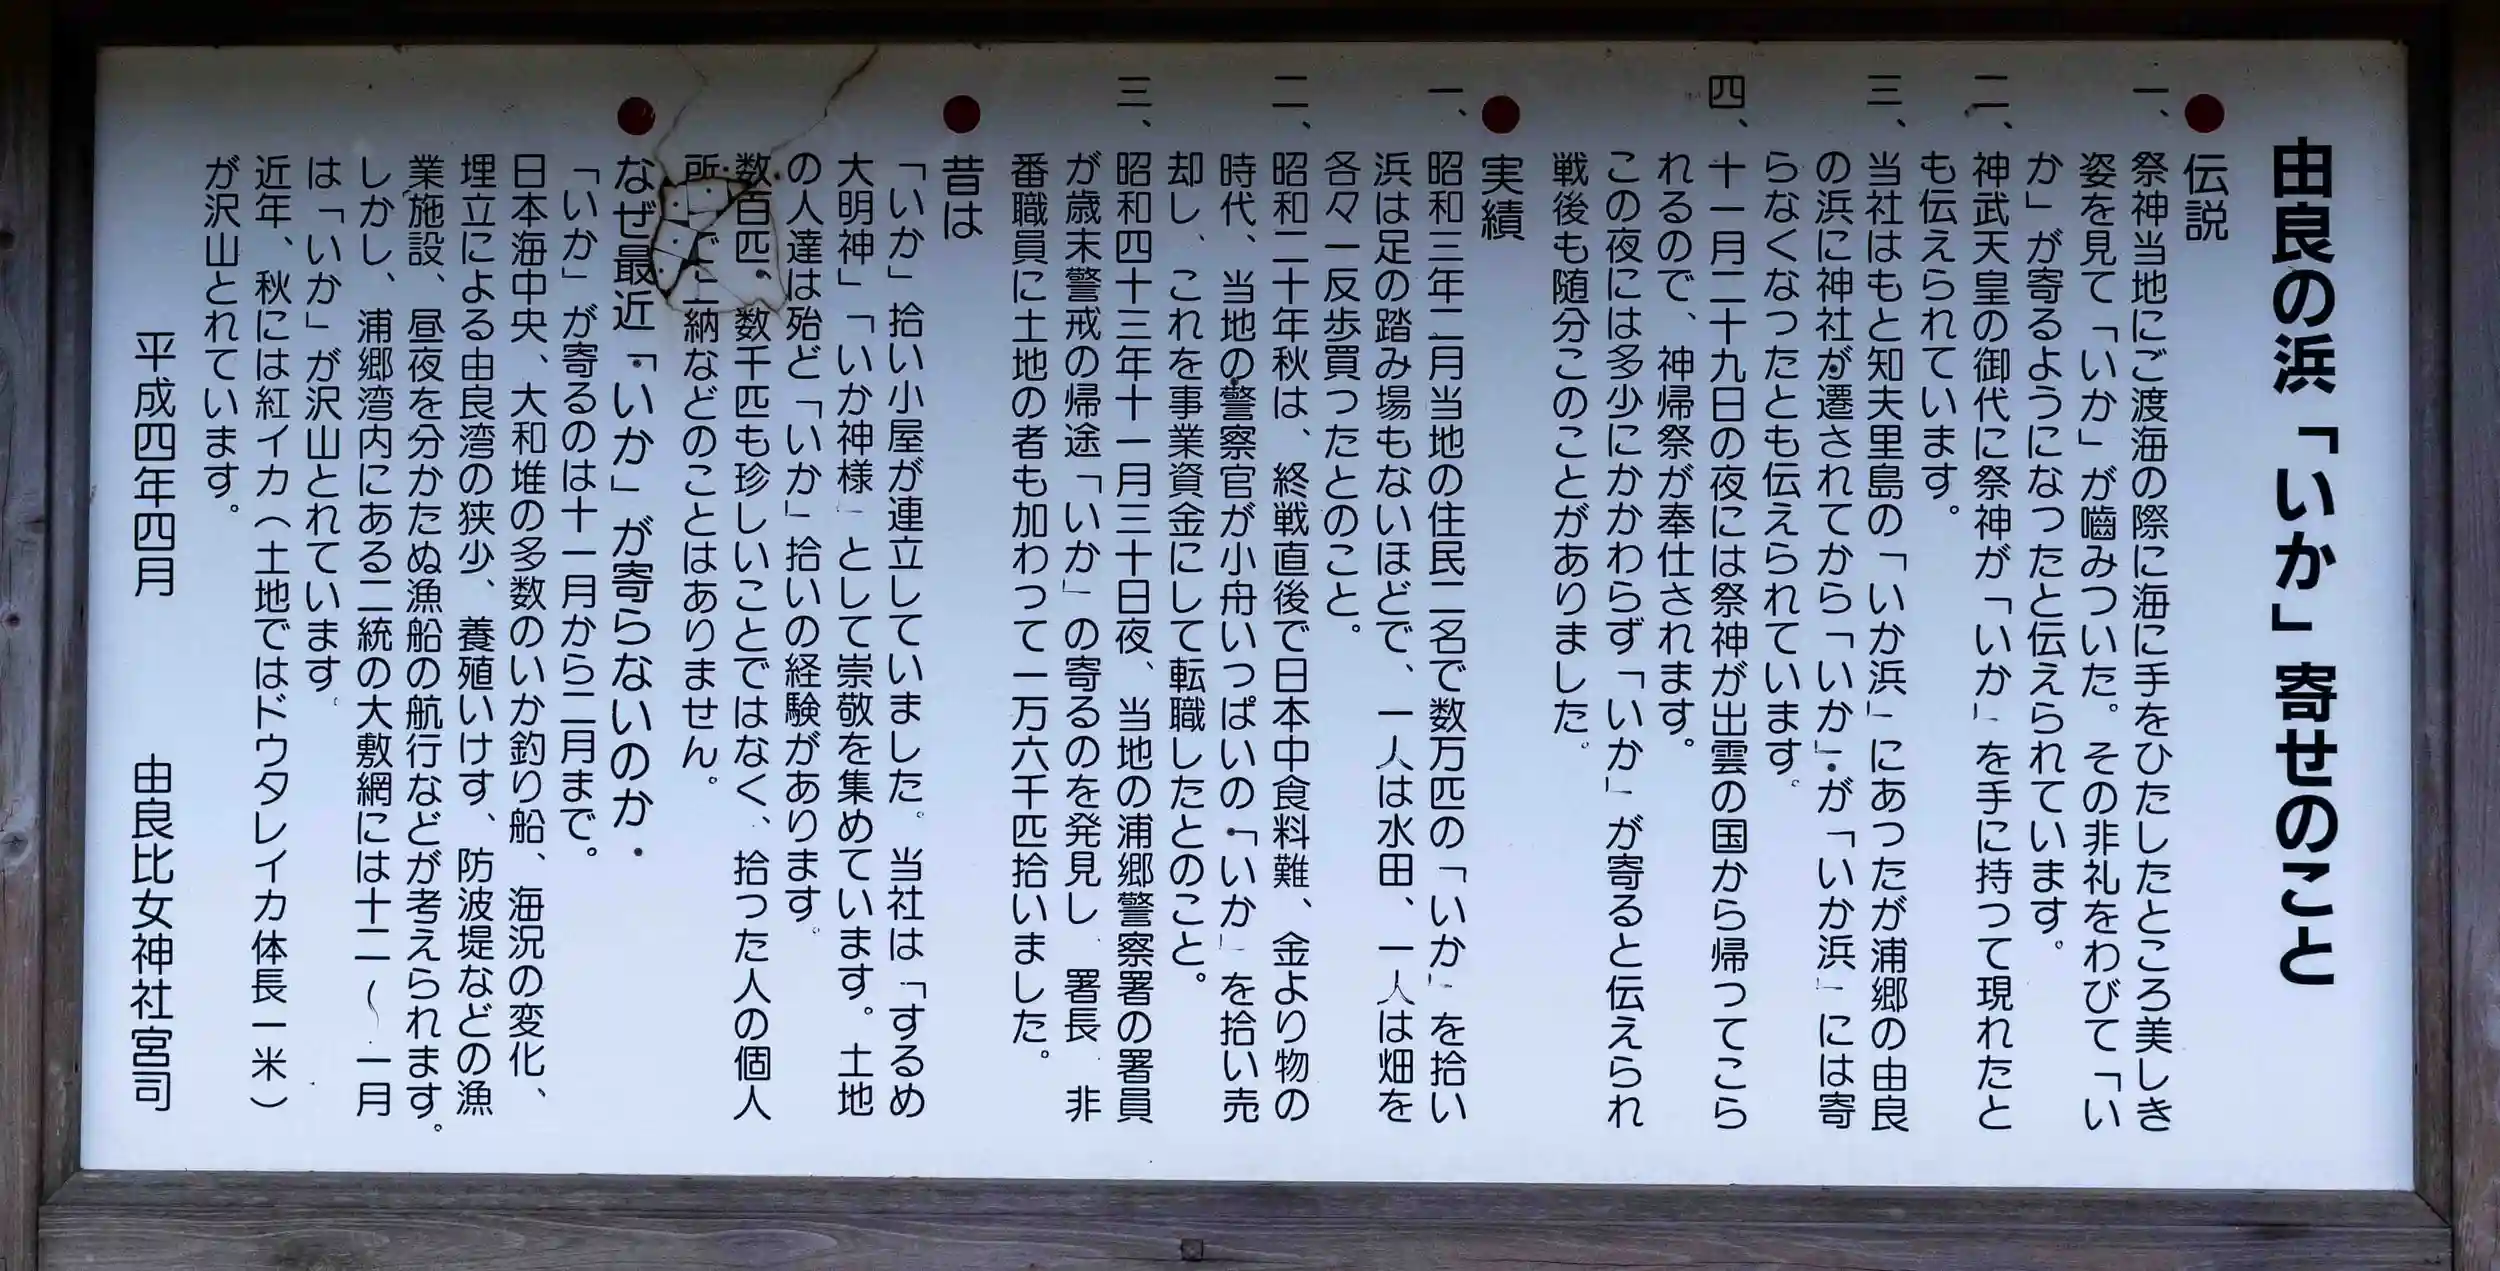 由良の浜「いか」寄せのこと
● 伝説
一、祭神当地にご渡海の際に海に手をひたしたところ美しき
姿を見て「いか」が嚙みついた。その非礼をわびて「い
か」が寄るようになったと伝えられています。
二、神武天皇の御代に祭神が「いか」を手に持って現れたと
も伝えられています。
三、当社はもと知夫里島の「いか浜」にあったが浦郷の由良
の浜に神社が遷されてから「いか」が「いか浜」には寄
らなくなったとも伝えられています。
四、十一月二十九日の夜には祭神が出雲の国から帰ってこら
れるので、神帰祭が奉仕されます。
この夜には多少にかかわらず「いか」が寄ると伝えられ
戦後も随分このことがありました。
● 実績
一、昭和三年二月当地の住民二名で数万匹の「いか」を拾い
浜は足の踏み場もないほどで、一人は水田、一人は畑を
各々一反歩買つたとのこと。
二、昭和二十年秋は、終戦直後で日本中食料難、金より物の
時代、当地の警察官が小舟いっぱいの「いか」を拾い売
却し、これを事業資金にして転職したとのこと。
三、昭和四十三年十一月三十日夜、当地の浦郷警察署の署員
が歳末警戒の帰途「いか」の寄るのを発見し、署長、非
番職員に土地の者も加わって一万六千匹拾いました。
● 昔は
「いか」拾い小屋が連立していました。当社は「するめ
大明神」「いか神様」として崇敬を集めています。土地
の人達は殆ど「いか」拾いの経験があります。
数百匹、数千匹も珍しいことではなく、拾った人の個人
所 で上納などのことはありません。
● なぜ最近「いか」が寄らないのか・
「いか」が寄るのは十一月から二月まで。
日本海中央、大和堆の多数のいか釣り船、海況の変化、
埋立による由良湾の狭少、養殖いけす、防波堤などの漁
業施設、昼夜を分かたぬ漁船の航行などが考えられます。
しかし、浦郷湾内にある二統の大敷網には十二～一月
は「いか」が沢山とれています。
近年、秋には紅イカ（土地ではドウタレイカ体長一米）
が沢山とれています。
平成四年四月 由良比女神社宮司